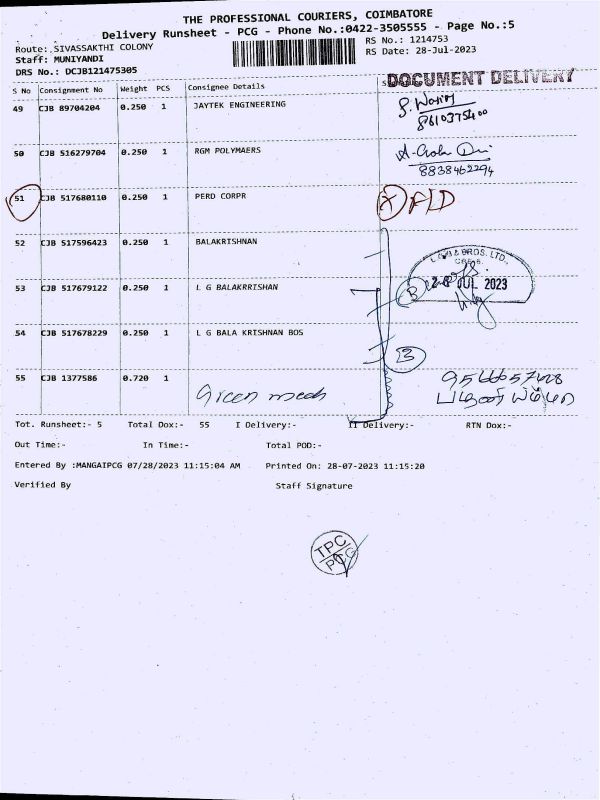 THE PROFESSIONAL COURIERS, COIMBATORE
Delivery Runsheet - PCG - Phone No.:0422-3505555 - Page No.:5
Route: SIVASSAKTHI COLONY
RS No.: 1214753
Staff: MUNIYANDI
RS Date: 28-Jul-2023
DRS No.: DCJB121475305
DOCUMENT DELIVERY
S No Consignment No Weight PCS Consignee Details
49 CJB 89704204 0.250 1 JAYTEK ENGINEERING
8610375400
50 CJB 516279704 0.250 1 RGM POLYMAERS
8838462294
51 CJB 517680110 0.250 1 PERD CORPR
52 CJB 517596423 0.250 1 BALAKRISHNAN
BROS. LTD.,
53 CJB 517679122 0.250 1 L G BALAKRRISHAN
JUL 2023
54 CJB 517678229 0.250 1 L G BALA KRISHNAN BOS
3
55 CJB 1377586 0.720 1 Green meds
Tot. Runsheet:- 5 Total Dox:- 55 I Delivery:- II Delivery:- RTN Dox:-
Out Time:- In Time:- Total POD:-
Entered By :MANGAIPCG 07/28/2023 11:15:04 AM Printed On: 28-07-2023 11:15:20
Verified By Staff Signature
TPC
PCG